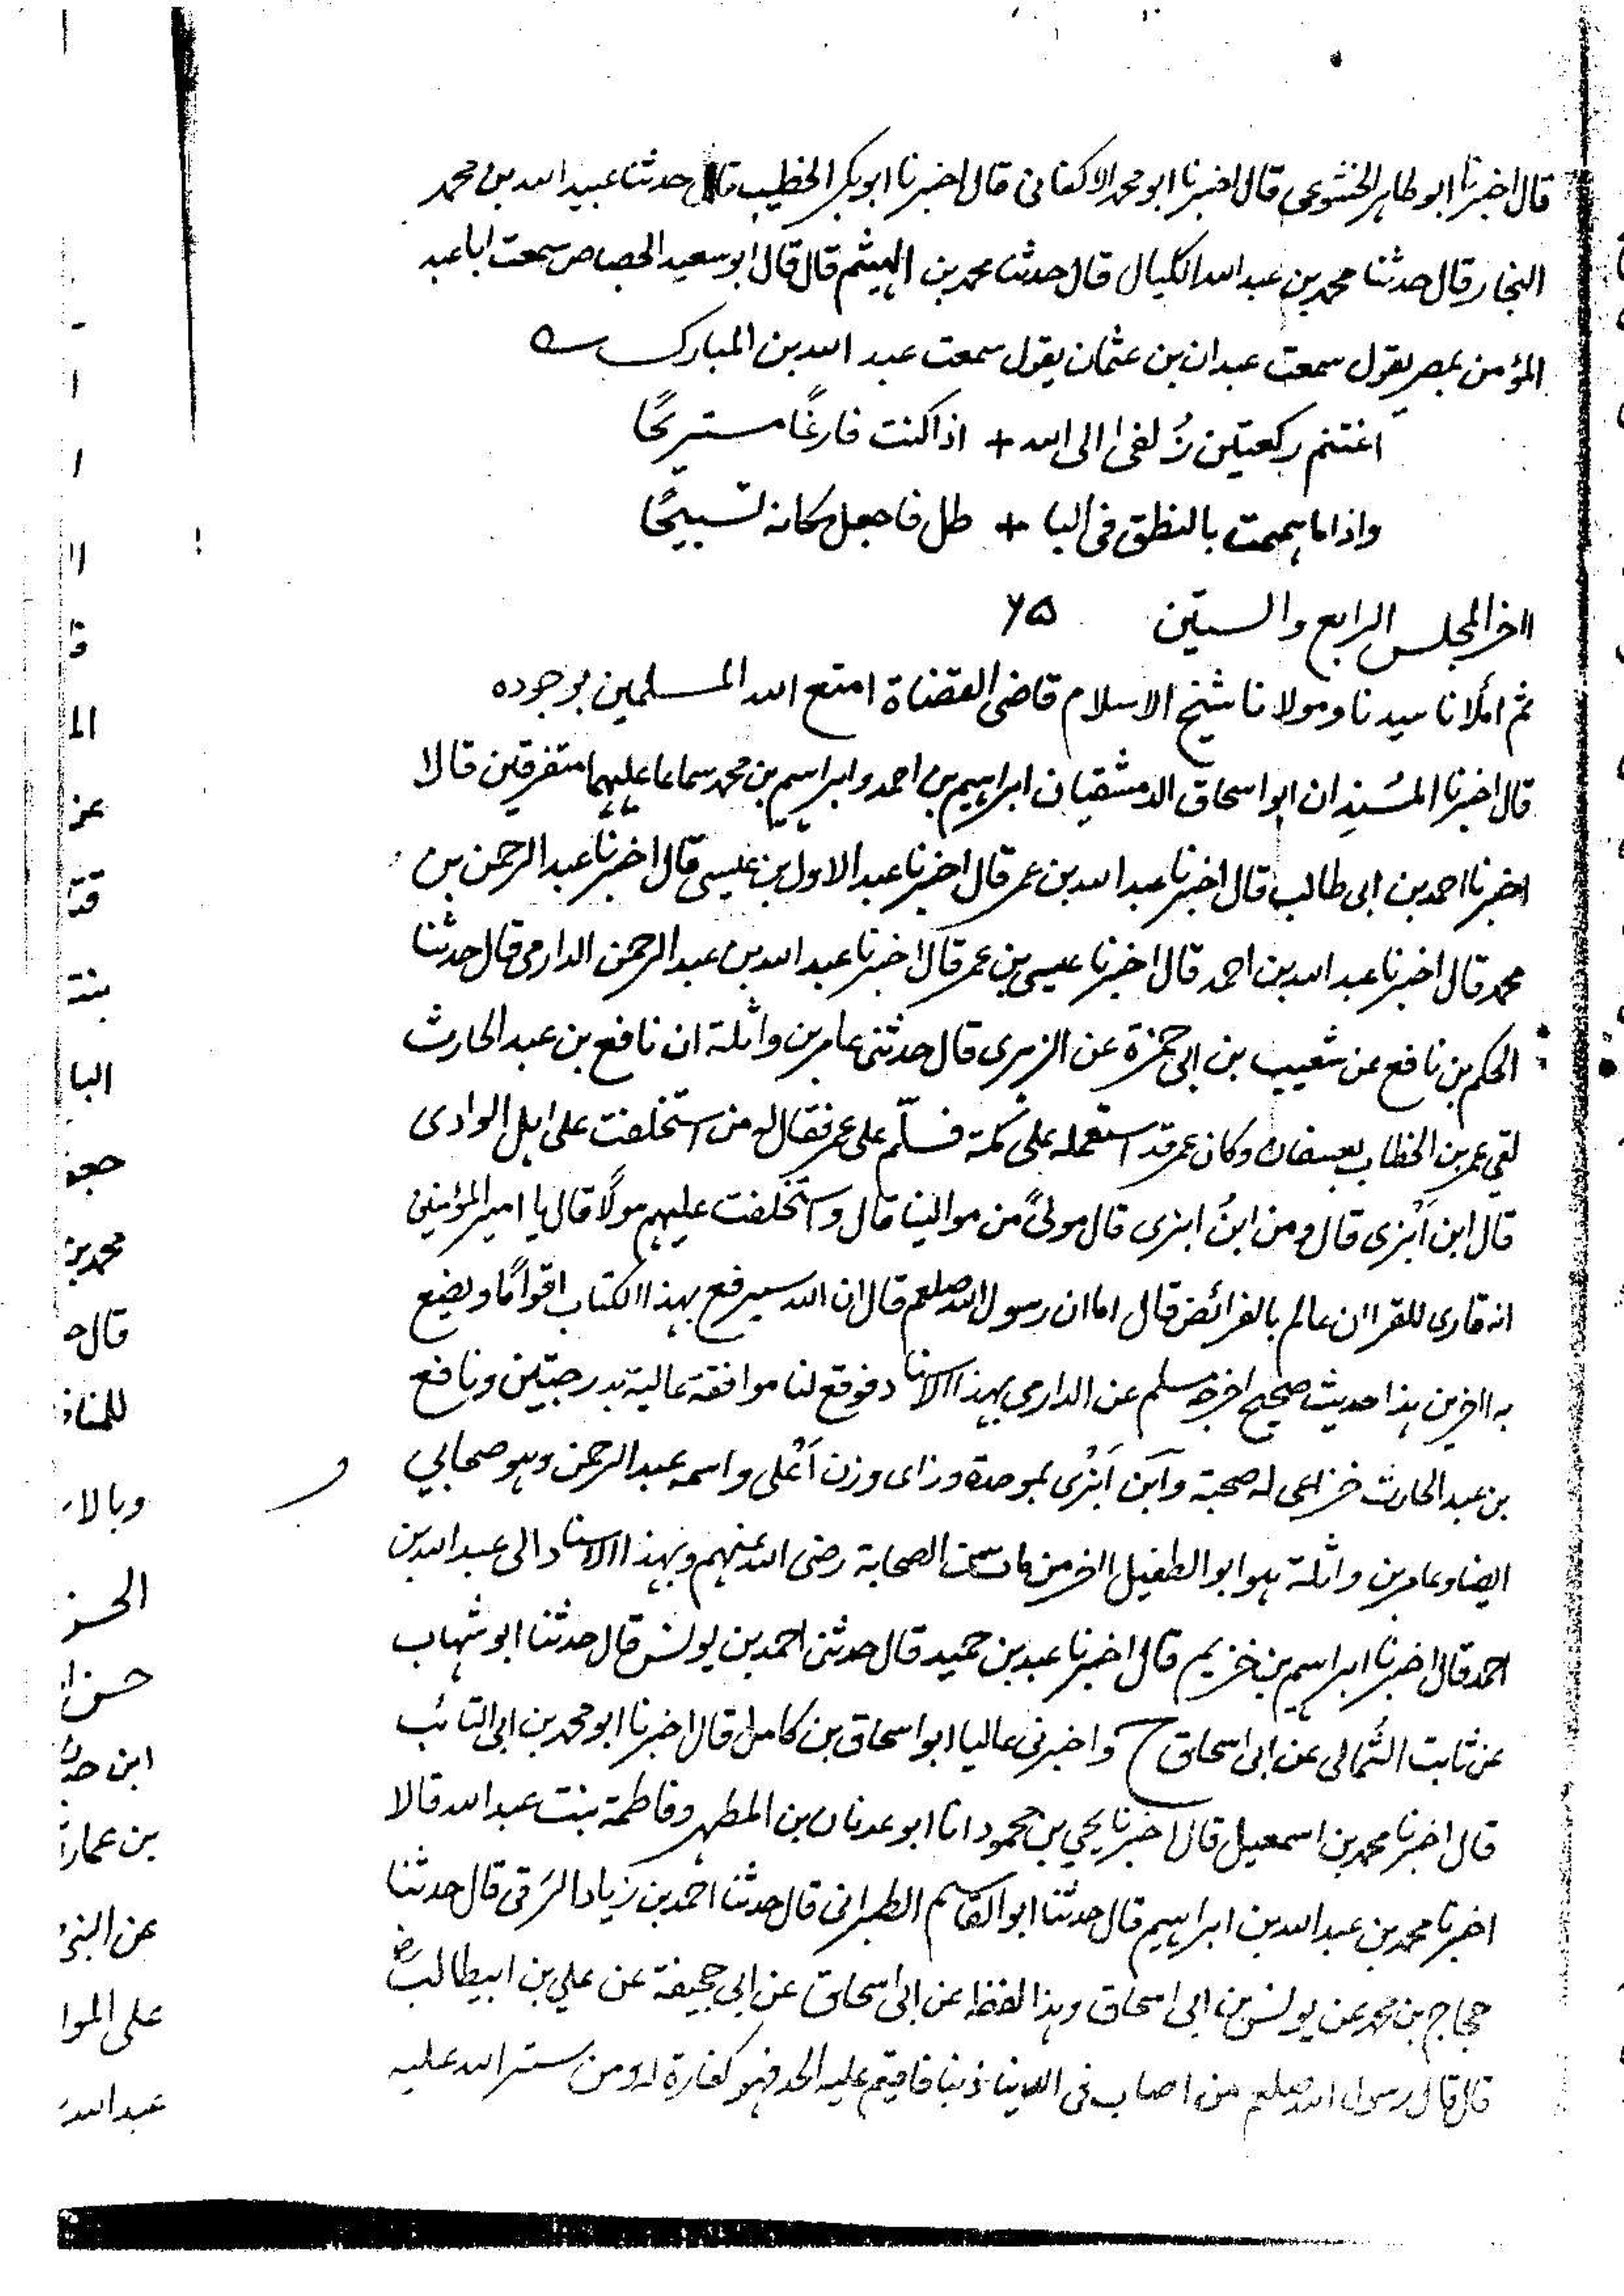 قال اخبرنا ابو طاهر الخشوعي قال اخبرنا ابو محمد الاكفانى قال اخبرنا ابو بكر الخطيب قال حدثنا عبيد الله بن محمد
النجار قال حدثنا محمد بن عبد الله الكيال قال حدثنا محمد بن الهيثم قال قال ابو سعيد الجصاص سمعت ابا عبد
المؤمن بمصر يقول سمعت عبدان بن عثمان يقول سمعت عبد الله بن المبارك
اغتنم ركعتين زُلفىٰ الى الله + اذا كنت فارغًا مستريحًا
واذا ما هممت بالنطق فى البا + طل فاجعل مكانه تسبيحًا
اخر المجلس الرابع والستين ۶۵
ثم املانا سيدنا ومولانا شيخ الاسلام قاضى القضاة امتع الله المسلمين بوجوده
قال اخبرنا المسندان ابو اسحاق الدمشقيان ابراهيم بن احمد وابراهيم بن محمد سماعا عليهما متفرقين قالا
اخبرنا احمد بن ابى طالب قال اخبرنا عبد الله بن عمر قال اخبرنا عبد الاول بن عيسى قال اخبرنا عبد الرحمن بن
محمد قال اخبرنا عبد الله بن احمد قال اخبرنا عيسى بن عمر قال اخبرنا عبد الله بن عبد الرحمن الدارمى قال حدثنا
الحكم بن نافع عن شعيب بن ابى حمزة عن الزهرى قال حدثنى عامر بن واثلة ان نافع بن عبد الحارث
لقى عمر بن الخطاب بعسفان وكان عمر قد استعمله على مكة فسلّم على عمر فقال له من استخلفت على اهل الوادى
قال ابن اَبْزى قال ومن ابنُ ابزى قال مولىً من موالينا قال واستخلفت عليهم مولًا قال يا امير المؤمنين
انه قارى للقران عالم بالفرائض قال اما ان رسول الله صلعم قال ان الله سيرفع بهذا الكتاب اقوامًا ويضع
به اخرين هذا حديث صحيح اخرجه مسلم عن الدارمى بهذا الاسناد فوقع لنا موافقة عالية بدرجتين ونافع
بن عبد الحارث خزاعى له صحبة وابن اَبْزى بموحدة وزاى وزن اَعْلى واسمه عبد الرحمن وهو صحابي
ايضا وعامر بن واثلة هو ابو الطفيل اخر من مات من الصحابة رضى الله عنهم وبهذا الاسناد الى عبد الله بن
احمد قال اخبرنا ابراهيم بن خزيم قال اخبرنا عبد بن حميد قال حدثنى احمد بن يونس قال حدثنا ابو شهاب
عن ثابت الثُمالى عن ابى اسحاق ح واخبرنى عاليا ابو اسحاق بن كامل قال اخبرنا ابو محمد بن ابى التائب
قال اخبرنا محمد بن اسمعيل قال اخبرنا يحيي بن محمود انا ابو عدنان بن المطهر وفاطمة بنت عبد الله قالا
اخبرنا محمد بن عبد الله بن ابراهيم قال حدثنا ابو القاسم الطبرانى قال حدثنا احمد بن زياد الرقى قال حدثنا
حجاج بن محمد عن يونس بن ابى اسحاق وهذا لفظه عن ابى اسحاق عن ابى جحيفة عن علي بن ابيطالب رض
قال قال رسول الله صلعم من اصاب فى الدينا ذنبا فاقيم عليه الحد فهو كفارة له ومن ستر الله عليه
الم
عن
البا
محمد بن
قال
وبالا
الحسن
ابن
بن عمارة
عن النبى
على الموا
عبد الله